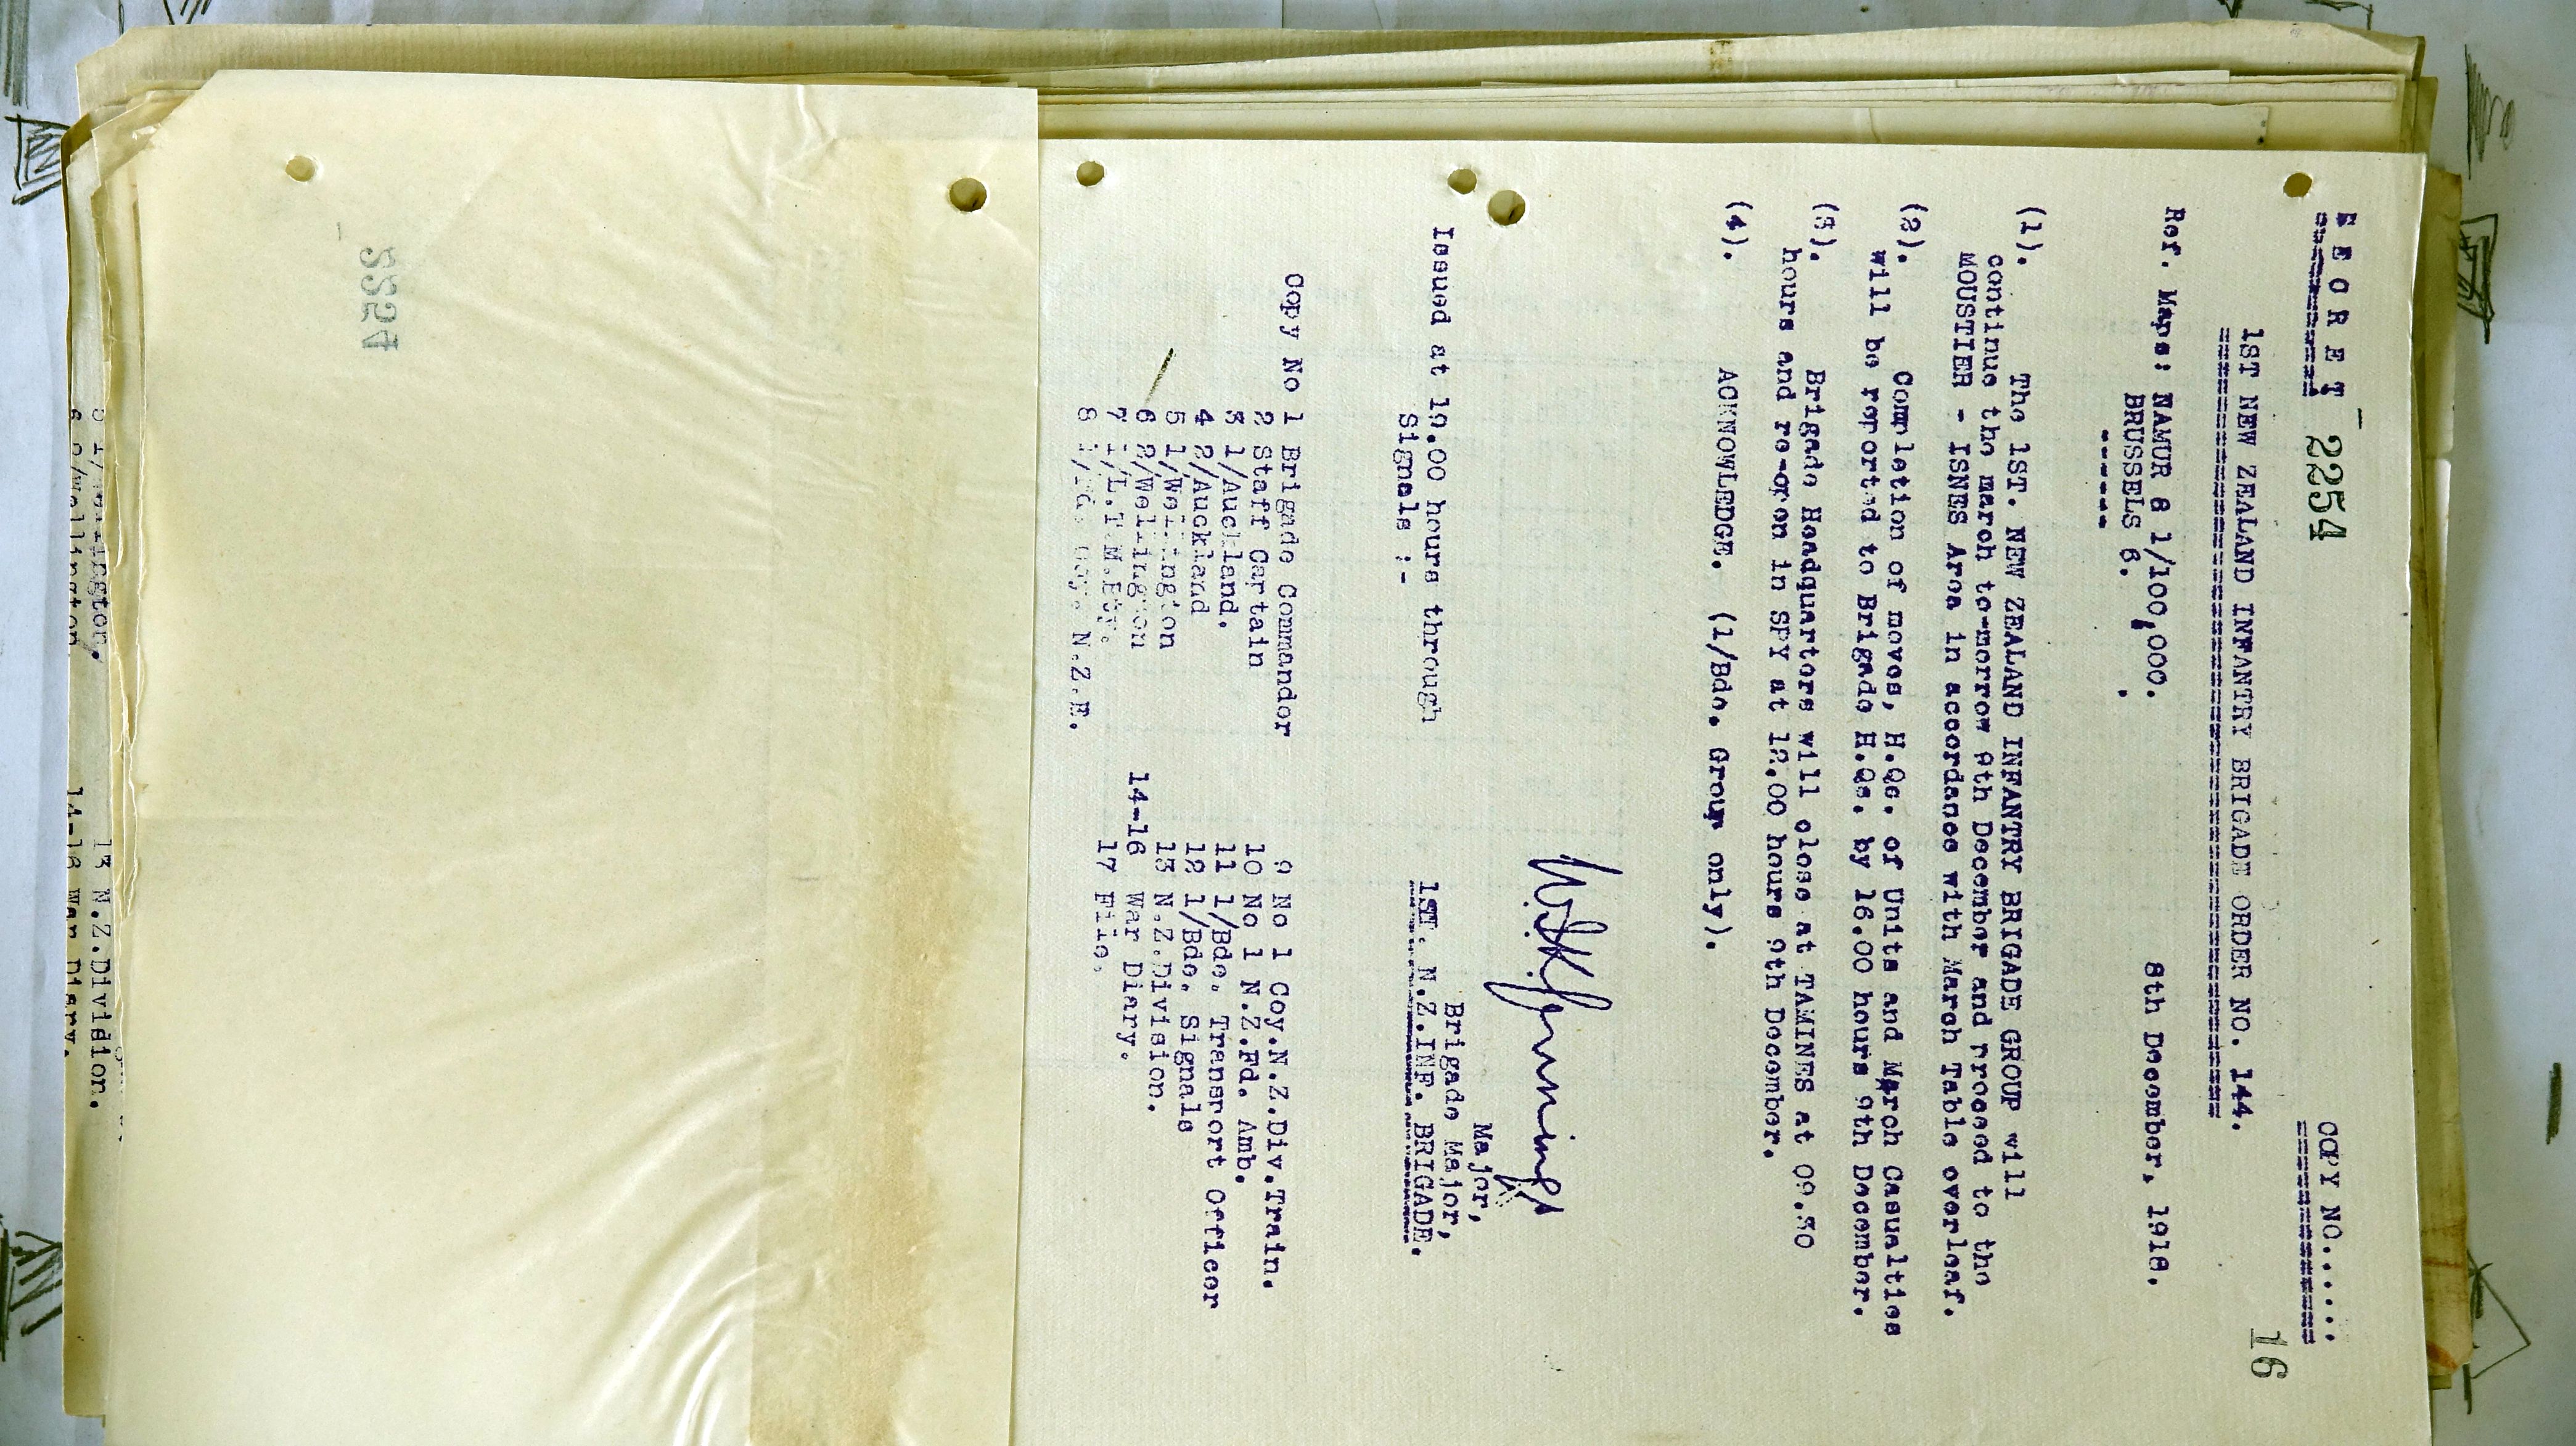 SECRET 2254
COPY NO.......
16
1ST NEW ZEALAND INFANTRY BRIGADE ORDER NO. 144.
Ref. Maps: NAMUR 8 1/100,000.
BRUSSELS 6.
8th December, 1918.
(1). The 1ST. NEW ZEALAND INFANTRY BRIGADE GROUP will
continue the march to-morrow 9th December and proceed to the
MOUSTIER - ISNES Area in accordance with March Table overleaf.
(2). Completion of moves, H.Qs. of Units and March Casualties
will be reported to Brigade H.Qs. by 16.00 hours 9th December.
(3). Brigade Headquarters will close at TAMINES at 09.30
hours and re-open in SPY at 12.00 hours 9th December.
(4). ACKNOWLEDGE. (1/Bde. Group only).
W.S.K. Jennings
Major,
Brigade Major,
1ST. N.Z.INF. BRIGADE.
Issued at 19.00 hours through
Signals :-
Copy No 1 Brigade Commander
2 Staff Captain
3 1/Auckland.
4 2/Auckland
5 1/Wellington
6 2/Wellington
7 1/L.T.M.Bty.
8 Coy. N.Z.E.
9 No 1 Coy.N.Z.Div.Train.
10 No 1 N.Z.Fd. Amb.
11 1/Bde. Transport Officer
12 1/Bde. Signals
13 N.Z.Division.
14-16 War Diary.
17 File.
2254
5 1/Wellington.
6 2/Wellington
13 N.Z.Division.
14-16 War Diary.